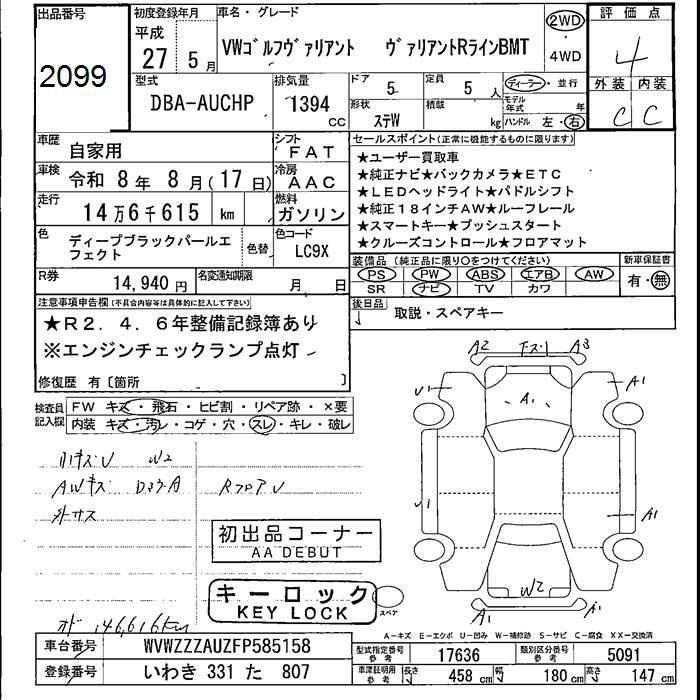 出品番号
2099
初度登録年月
平成
27 5月
車名・グレード
VWゴルフヴァリアント ヴァリアントRラインBMT
2WD
・
4WD
評価点
4
外装 内装
C C
型式
DBA-AUCHP
排気量
1394
cc
ドア
5
定員
5人
形状
ステW
積載
kg
ディーラー・並行
モデル年式
年
ハンドル 左・右
車歴
自家用
シフト
FAT
車検
令和 8年 8月(17日)
冷房
AAC
走行
14万6千615 km
燃料
ガソリン
色
ディープブラックパールエフェクト
色替
色コード
LC9X
R券
14,940円
名変通知期限
月 日
セールスポイント(正常に機能するものに限ります)
★ユーザー買取車
★純正ナビ★バックカメラ★ETC
★LEDヘッドライト★パドルシフト
★純正18インチAW★ルーフレール
★スマートキー★プッシュスタート
★クルーズコントロール★フロアマット
装備品(純正品に限り○をつけてください)
PS PW ABS エアB AW
SR ナビ TV カワ
新車保証書
有・無
後日品
取説・スペアキー
注意事項申告欄(不具合内容等は具体的に記入して下さい)
★R2.4.6年整備記録簿あり
※エンジンチェックランプ点灯
修復歴 有〔箇所 〕
検査員記入欄
FW キズ・飛石・ヒビ割・リペア跡・×要
内装 キズ・汚レ・コゲ・穴・スレ・キレ・破レ
W2
AWキズ
RフロアU
外サス
初出品コーナー
AA DEBUT
キーロック
KEY LOCK
146,616km
スペア
A2
A3
U1
A1
A1
U1
A1
W2
A1
A1
A-キズ E-エクボ U-凹み W-補修跡 S-サビ C-腐食 XX-交換済
車台番号
WVWZZZAUZFP585158
登録番号
いわき 331 た 807
型式指定番号 参考
17636
類別区分番号 参考
5091
車庫証明用 参考
長さ 458 cm
幅 180 cm
高さ 147 cm